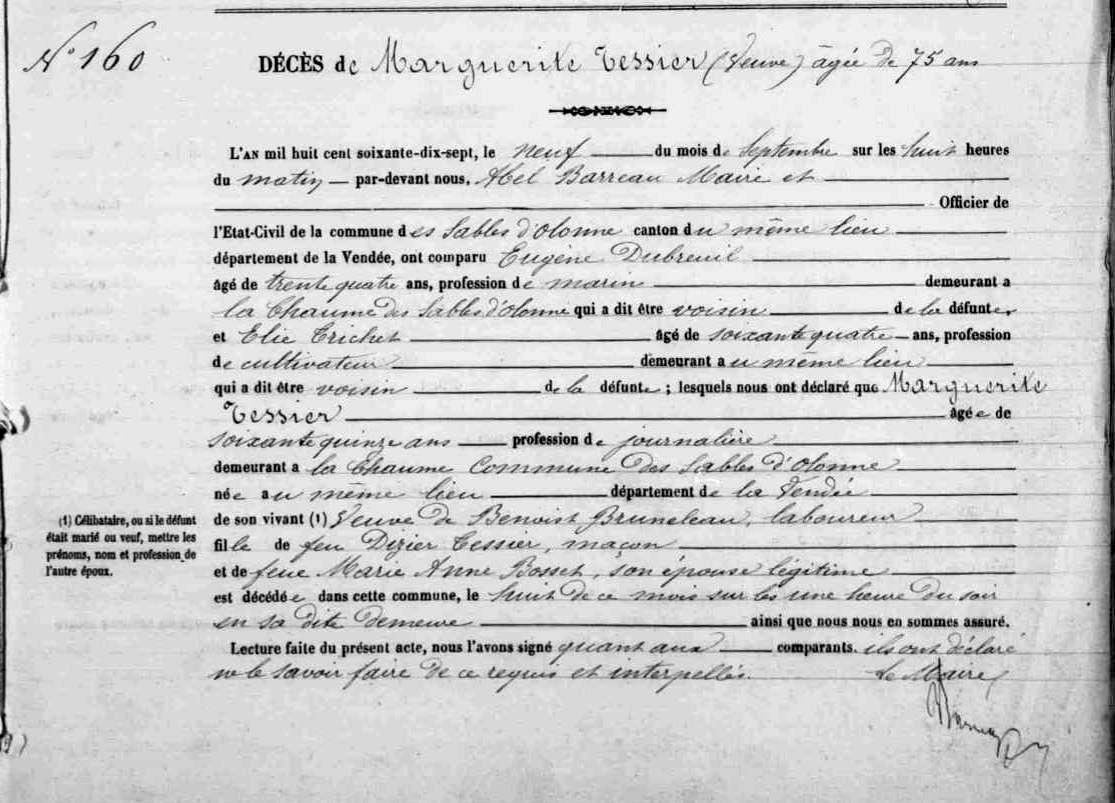 N° 160
DÉCÈS de Marguerite Tessier (Veuve) âgée de 75 ans
L'AN mil huit cent soixante-dix-sept, le neuf du mois de Septembre sur les huit heures
du matin par-devant nous, Abel Barreau Maire et
Officier de
l'Etat-Civil de la commune des Sables d'Olonne canton du même lieu
département de la Vendée, ont comparu Eugène Dubreuil
âgé de trente quatre ans, profession de marin demeurant a
la Chaume des Sables d'Olonne qui a dit être voisin de la défunte
et Elie Trichet âgé de soixante quatre ans, profession
de cultivateur demeurant au même lieu
qui a dit être voisin de la défunte ; lesquels nous ont déclaré que Marguerite
Tessier âgée de
soixante quinze ans profession de journalière
demeurant a la Chaume Commune des Sables d'Olonne
née au même lieu département de la Vendée
(1) Célibataire, ou si le défunt
était marié ou veuf, mettre les
prénoms, nom et profession de
l'autre époux.
de son vivant (1) Veuve de Benoist Bruneleau, laboureur
fille de feu Dizier Tessier, maçon
et de feue Marie Anne Bosset, son épouse légitime
est décédée dans cette commune, le huit de ce mois sur les une heure du soir
en sa dite demeure ainsi que nous nous en sommes assuré.
Lecture faite du présent acte, nous l'avons signé quant aux comparants. ils ont déclaré
ne le savoir faire de ce requis et interpellés. Le Maire,